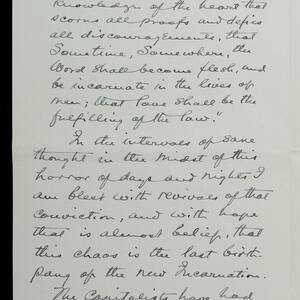 Knowledge of the heart that
scorns all proofs and defies
all discouragements, that
Sometime, Somewhere, the
Word shall become flesh, and
be incarnate in the lives of
men; that love shall be the
fulfilling of the law."
In the intervals of sane
thought in the midst of this
horror of days and nights I
am blest with revivals of that
conviction, and with hope
that is almost belief, that
this chaos is the last birth-
pang of the new Incarnation.
The Capitalists have had